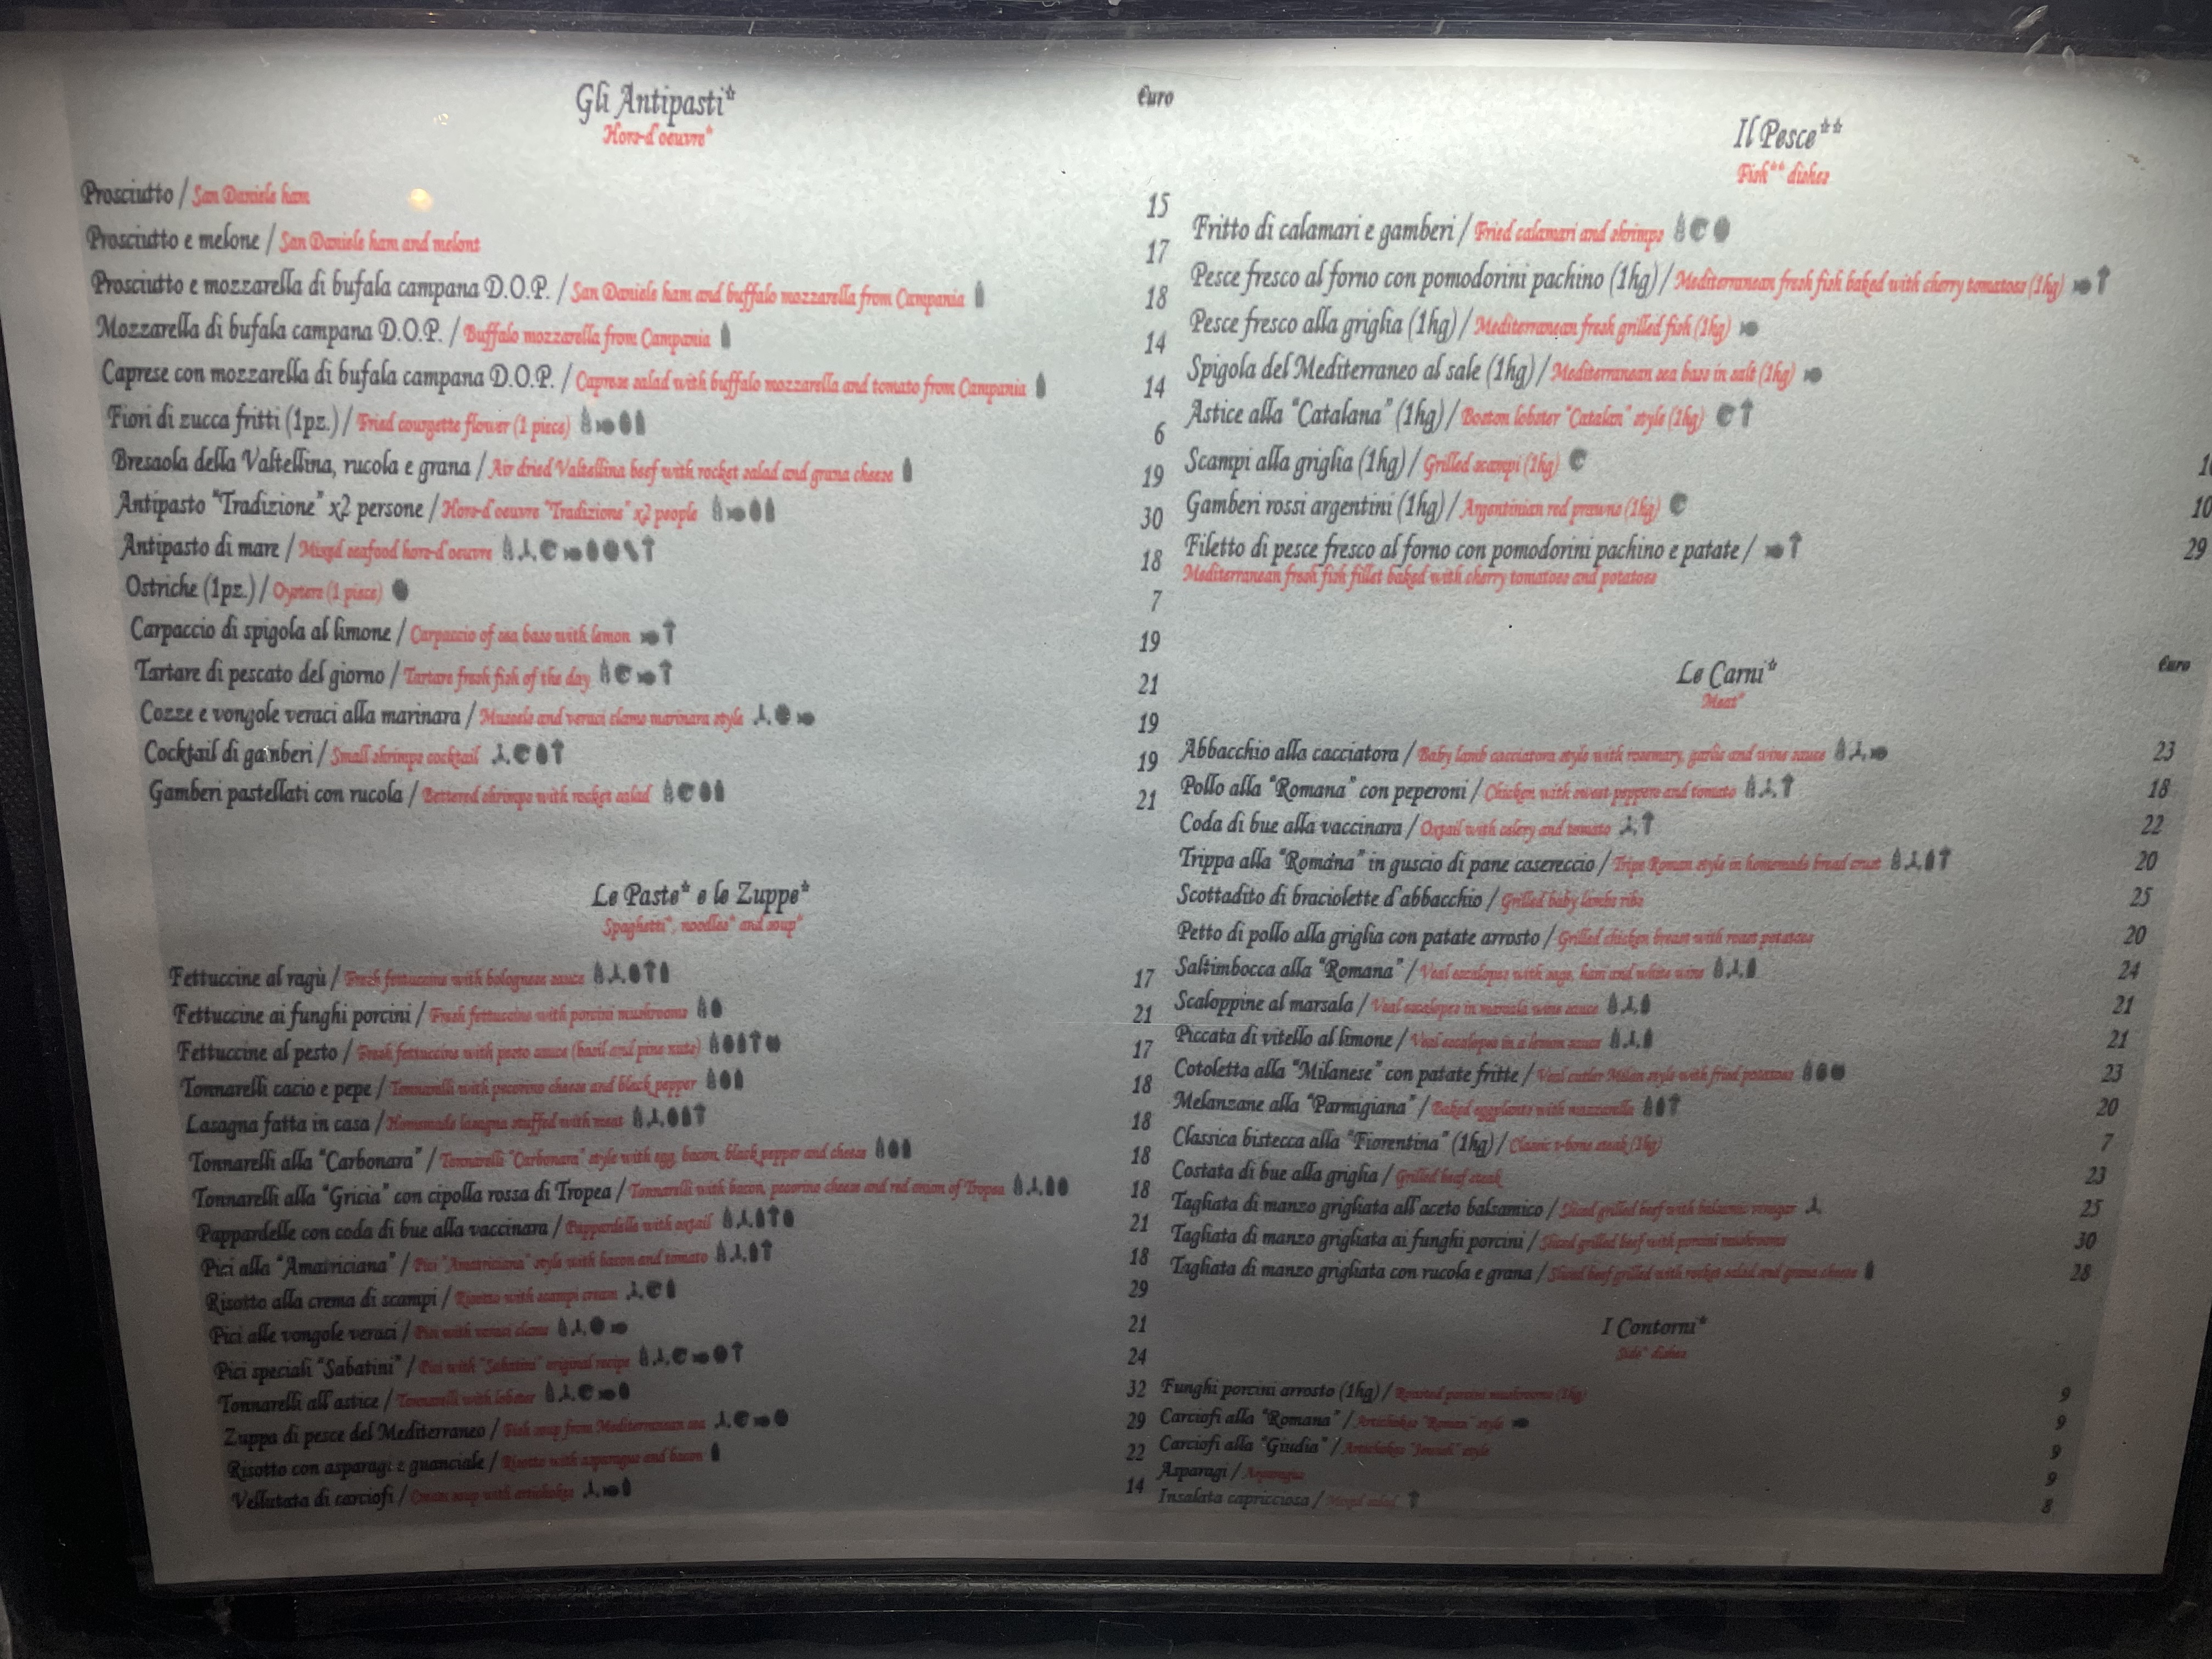 Gli Antipasti*
Hors-d'oeuvre*
Euro
Prosciutto / San Daniele ham 15
Prosciutto e melone / San Daniele ham and melont 17
Prosciutto e mozzarella di bufala campana D.O.P. / San Daniele ham and buffalo mozzarella from Campania 18
Mozzarella di bufala campana D.O.P. / Buffalo mozzarella from Campania 14
Caprese con mozzarella di bufala campana D.O.P. / Caprese salad with buffalo mozzarella and tomato from Campania 14
Fiori di zucca fritti (1pz.) / Fried courgette flower (1 piece) 6
Bresaola della Valtellina, rucola e grana / Air dried Valtellina beef with rocket salad and grana cheese 19
Antipasto "Tradizione" x2 persone / Hors-d'oeuvre "Tradizione" x2 people 30
Antipasto di mare / Mixed seafood hors-d'oeuvre 18
Ostriche (1pz.) / Oysters (1 piece) 7
Carpaccio di spigola al limone / Carpaccio of sea bass with lemon 19
Tartare di pescato del giorno / Tartare fresh fish of the day 21
Cozze e vongole veraci alla marinara / Mussels and veraci clams marinara style 19
Cocktail di gamberi / Small shrimps cocktail 19
Gamberi pastellati con rucola / Bettered shrimps with rocket salad 21
Le Paste* e le Zuppe*
Spaghetti*, noodles* and soup*
Fettuccine al ragù / Fresh fettuccine with bolognese sauce 17
Fettuccine ai funghi porcini / Fresh fettuccine with porcini mushrooms 21
Fettuccine al pesto / Fresh fettuccine with pesto sauce (basil and pine nuts) 17
Tonnarelli cacio e pepe / Tonnarelli with pecorino cheese and black pepper 18
Lasagna fatta in casa / Homemade lasagna stuffed with meat 18
Tonnarelli alla "Carbonara" / Tonnarelli "Carbonara" style with egg, bacon, black pepper and cheese 18
Tonnarelli alla "Gricia" con cipolla rossa di Tropea / Tonnarelli with bacon, pecorino cheese and red onion of Tropea 18
Pappardelle con coda di bue alla vaccinara / Pappardelle with oxtail 21
Pici alla "Amatriciana" / Pici "Amatriciana" style with bacon and tomato 18
Risotto alla crema di scampi / Risotto with scampi cream 29
Pici alle vongole veraci / Pici with veraci clams 21
Pici speciali "Sabatini" / Pici with "Sabatini" original recipe 24
Tonnarelli all'astice / Tonnarelli with lobster 32
Zuppa di pesce del Mediterraneo / Fish soup from Mediterranean sea 29
Risotto con asparagi e guanciale / Risotto with asparagus and bacon 22
Vellutata di carciofi / Cream soup with artichokes 14
Il Pesce**
Fish** dishes
Fritto di calamari e gamberi / Fried calamari and shrimps
Pesce fresco al forno con pomodorini pachino (1hg) / Mediterranean fresh fish baked with cherry tomatoes (1hg)
Pesce fresco alla griglia (1hg) / Mediterranean fresh grilled fish (1hg)
Spigola del Mediterraneo al sale (1hg) / Mediterranean sea bass in salt (1hg)
Astice alla "Catalana" (1hg) / Boston lobster "Catalan" style (1hg)
Scampi alla griglia (1hg) / Grilled scampi (1hg)
Gamberi rossi argentini (1hg) / Argentinian red prawns (1hg) 10
Filetto di pesce fresco al forno con pomodorini pachino e patate / 29
Mediterranean fresh fish fillet baked with cherry tomatoes and potatoes
Le Carni*
Meat*
Euro
Abbacchio alla cacciatora / Baby lamb cacciatora style with rosemary, garlic and wine sauce 23
Pollo alla "Romana" con peperoni / Chicken with sweet peppers and tomato 18
Coda di bue alla vaccinara / Oxtail with celery and tomato 22
Trippa alla "Romana" in guscio di pane casereccio / Tripe Roman style in homemade bread crust 20
Scottadito di braciolette d'abbacchio / Grilled baby lambs ribs 25
Petto di pollo alla griglia con patate arrosto / Grilled chicken breast with roast potatoes 20
Saltimbocca alla "Romana" / Veal escalopes with sage, ham and white wine 24
Scaloppine al marsala / Veal escalopes in marsala wine sauce 21
Piccata di vitello al limone / Veal escalopes in a lemon sauce 21
Cotoletta alla "Milanese" con patate fritte / Veal cutler Milan style with fried potatoes 23
Melanzane alla "Parmigiana" / Baked eggplants with mozzarella 20
Classica bistecca alla "Fiorentina" (1hg) / Classic t-bone steak (1hg) 7
Costata di bue alla griglia / Grilled beef steak 23
Tagliata di manzo grigliata all'aceto balsamico / Sliced grilled beef with balsamic vinegar 25
Tagliata di manzo grigliata ai funghi porcini / Sliced grilled beef with porcini mushrooms 30
Tagliata di manzo grigliata con rucola e grana / Sliced beef grilled with rocket salad and grana cheese 28
I Contorni*
Side* dishes
Funghi porcini arrosto (1hg) / Roasted porcini mushrooms (1hg) 9
Carciofi alla "Romana" / Artichokes "Roman" style 9
Carciofi alla "Giudia" / Artichokes "Jewish" style 9
Asparagi / Asparagus 9
Insalata capricciosa / Mixed salad 8